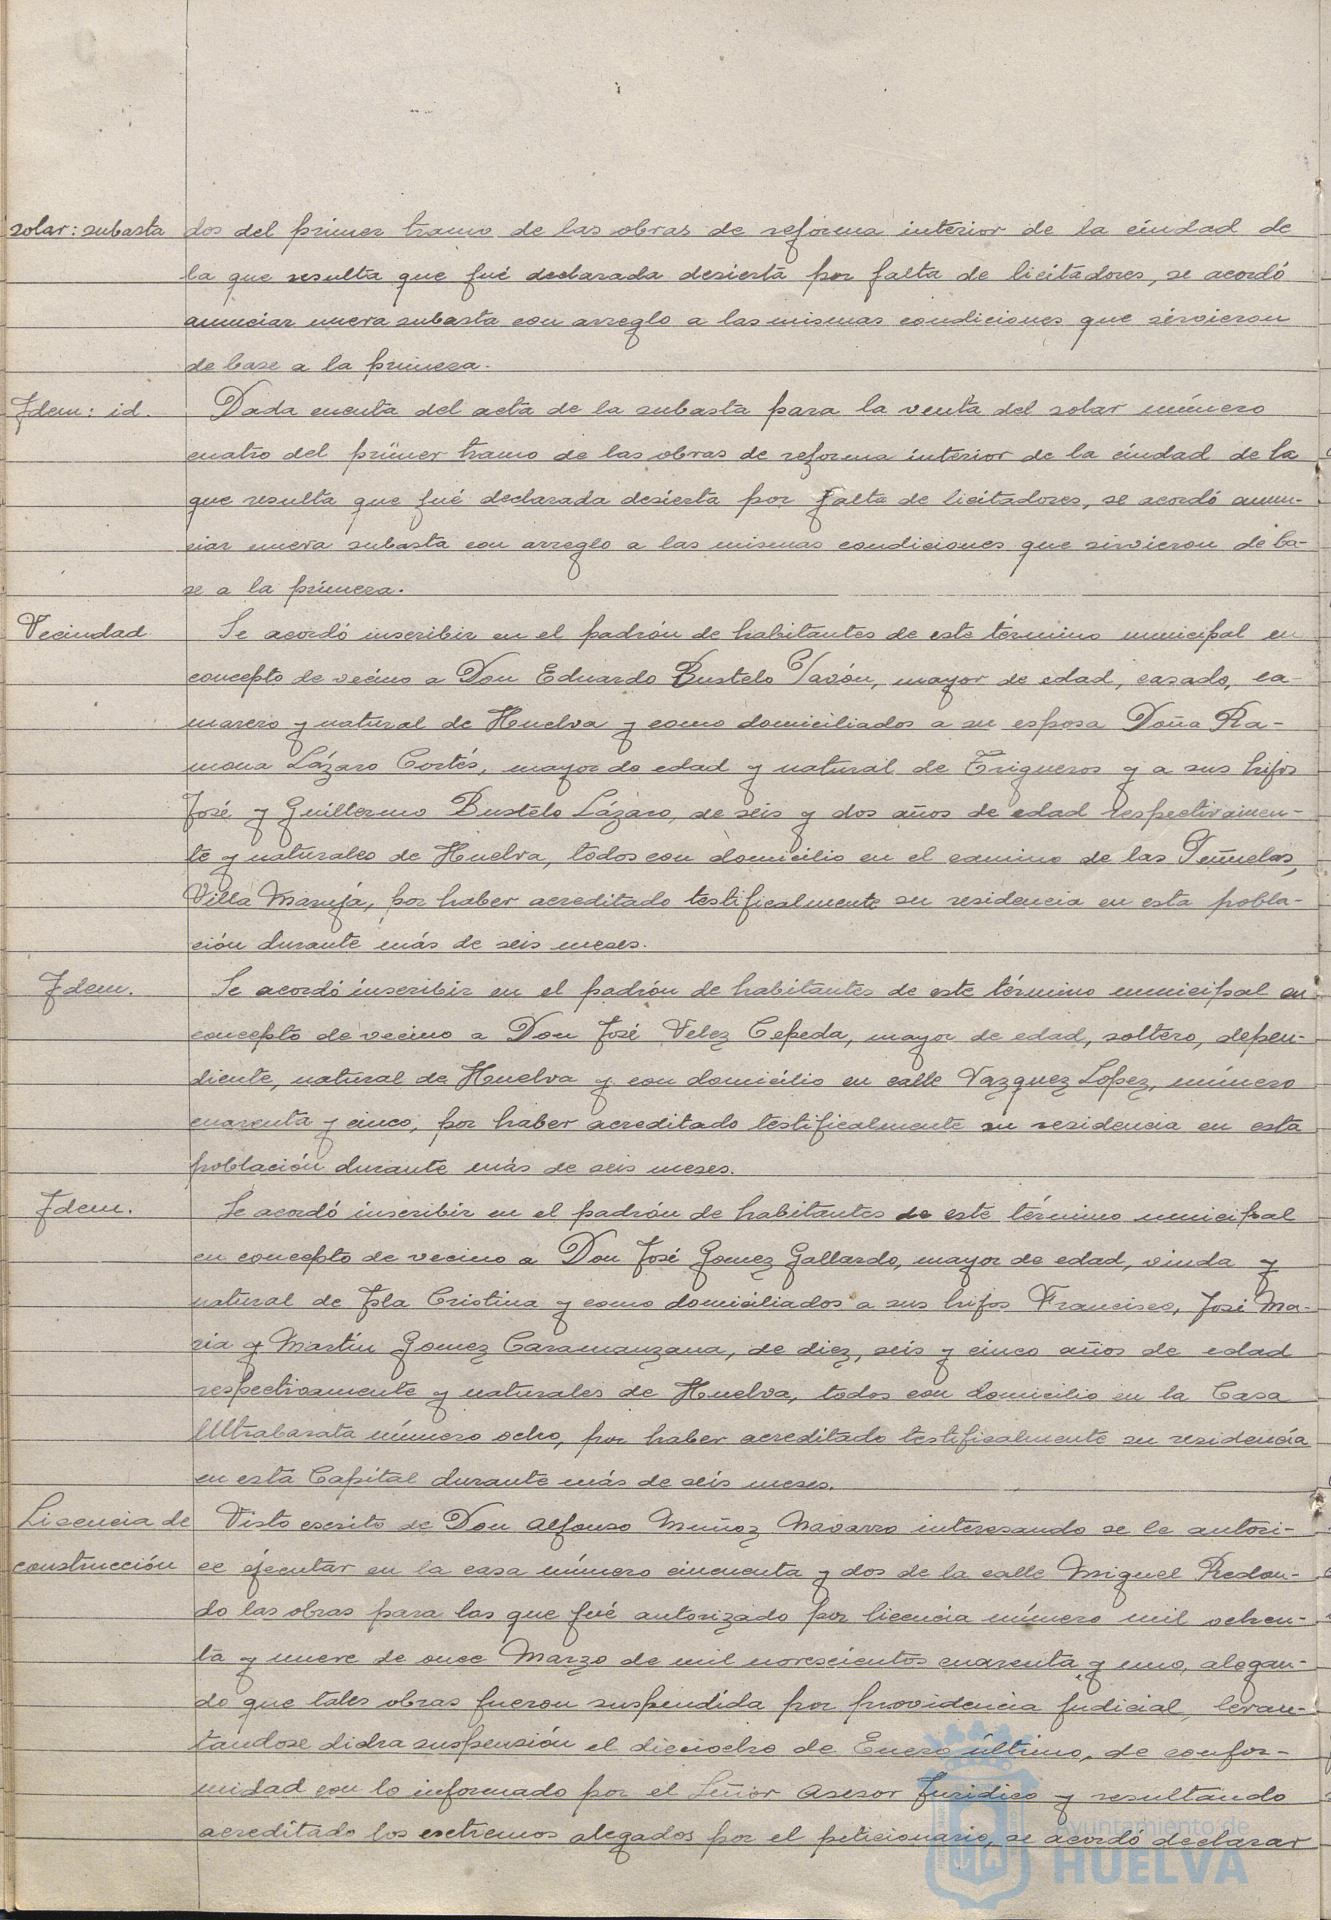 solar: subasta dos del primer tramo de las obras de reforma interior de la ciudad de
la que resulta que fué declarada desierta por falta de licitadores, se acordó
anunciar nueva subasta con arreglo a las mismas condiciones que sirvieron
de base a la primera.
Idem: id. Dada cuenta del acta de la subasta para la venta del solar número
cuatro del primer tramo de las obras de reforma interior de la ciudad de la
que resulta que fué declarada desierta por falta de licitadores, se acordó anun-
ciar nueva subasta con arreglo a las mismas condiciones que sirvieron de ba-
se a la primera.
Vecindad Se acordó inscribir en el padrón de habitantes de este término municipal en
concepto de vecino a Don Eduardo Bustelo Pavón, mayor de edad, casado, ca-
marero y natural de Huelva y como domiciliados a su esposa Doña Ra-
mona Lázaro Cortés, mayor de edad y natural de Trigueros y a sus hijos
José y Guillermo Bustelo Lázaro, de seis y dos años de edad respectivamen-
te y naturales de Huelva, todos con domicilio en el camino de las Peñuelas,
Villa Maruja, por haber acreditado testificalmente su residencia en esta pobla-
ción durante más de seis meses.
Idem. Se acordó inscribir en el padrón de habitantes de este término municipal en
concepto de vecino a Don José Velez Cepeda, mayor de edad, soltero, depen-
diente, natural de Huelva y con domicilio en calle Vazquez Lopez, número
cuarenta y cinco, por haber acreditado testificalmente su residencia en esta
población durante más de seis meses.
Idem. Se acordó inscribir en el padrón de habitantes de este término municipal
en concepto de vecino a Don José Gomez Gallardo, mayor de edad, viudo y
natural de Isla Cristina y como domiciliados a sus hijos Francisco, José Ma-
ria y Martín Gomez Caramanzana, de diez, seis y cinco años de edad
respectivamente y naturales de Huelva, todos con domicilio en la Casa
Ultrabarata número ocho, por haber acreditado testificalmente su residencia
en esta Capital durante más de seis meses.
Licencia de Visto escrito de Don Alfonso Muñoz Navarro interesando se le autori-
construcción ce ejecutar en la casa número cincuenta y dos de la calle Miguel Redon-
do las obras para las que fué autorizado por licencia número mil ochen-
ta y nueve de once Marzo de mil novescientos cuarenta y uno, alegan-
do que tales obras fueron suspendida por providencia judicial, levan-
tandose dicha suspensión el dieciocho de Enero último, de confor-
midad con lo informado por el Señor Asesor Juridico y resultando
acreditado los extremos alegados por el peticionario, se acordó declarar
Ayuntamiento de
HUELVA